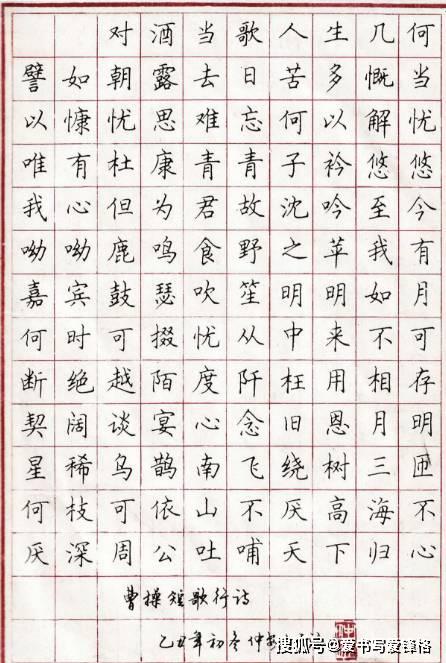 对酒当歌人生几何
譬如朝露去日苦多慨当
以慷忧思难忘何以解忧
唯有杜康青青子衿悠悠
我心但为君故沈吟至今
呦呦鹿鸣食野之苹我有
嘉宾鼓瑟吹笙明明如月
何时可掇忧从中来不可
断绝越陌度阡枉用相存
契阔谈宴心念旧恩月明
星稀乌鹊南飞绕树三匝
何枝可依山不厌高海不
厌深周公吐哺天下归心
曹操短歌行诗
乙丑年初冬仲
搜狐号@爱书写爱锋格